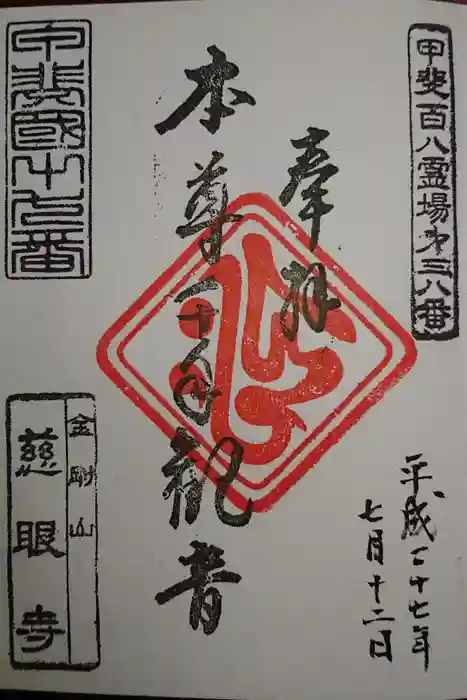 甲斐百八霊場第三八番
奉拝
平成二十七年
七月十二日
本尊千手観音
甲斐國十七番
金剛山
慈眼寺